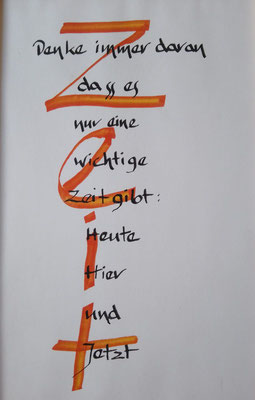 Denke immer daran
dass es
nur eine
wichtige
Zeit gibt:
Heute
Hier
und
Jetzt
Zeit